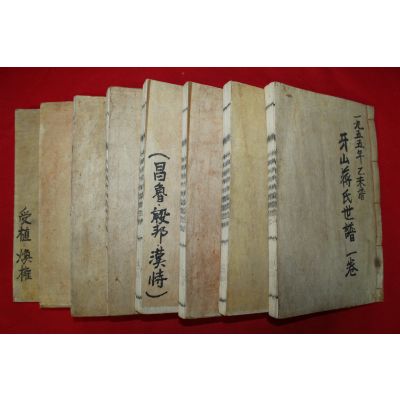 一九五五年 乙未譜
牙山蔣氏世譜 一卷
(昌魯·毅邦漢恃)
受植 煥權